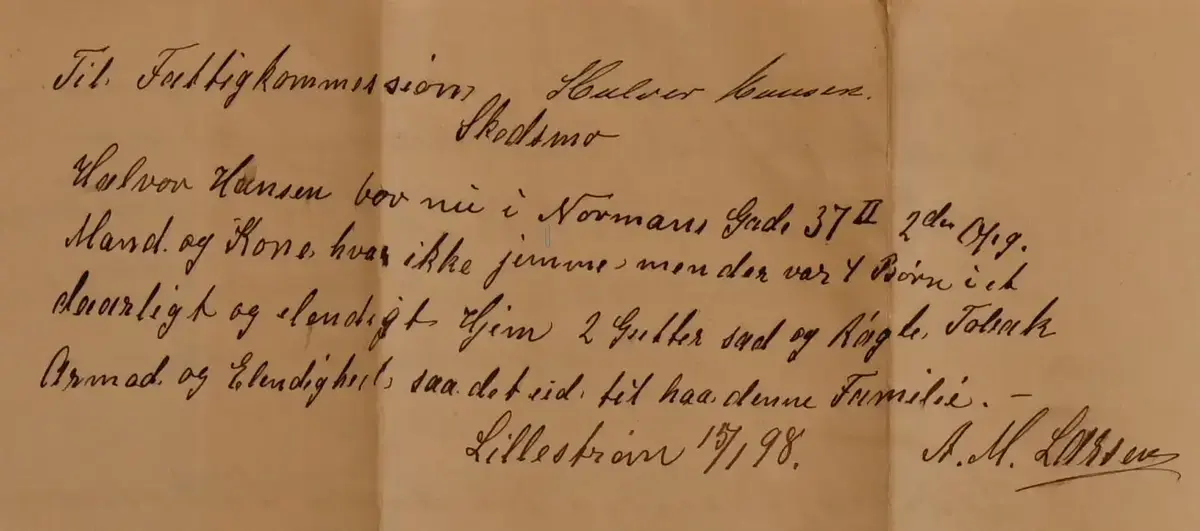 Til Fattigkommission Halvor Hansen.
Skedsmo
Halvor Hansen bor nu i Normans Gade 37 II 2den Opg.
Mand og Kone var ikke jemme men der var 4 Børn i et
daarligt og elendigt Hjem 2 Gutter sad og Røgte Tobak
Armod og Elendighed saa det ud til haa denne Familie. —
Lillestrøm 15/1 98. A. M. Larsen